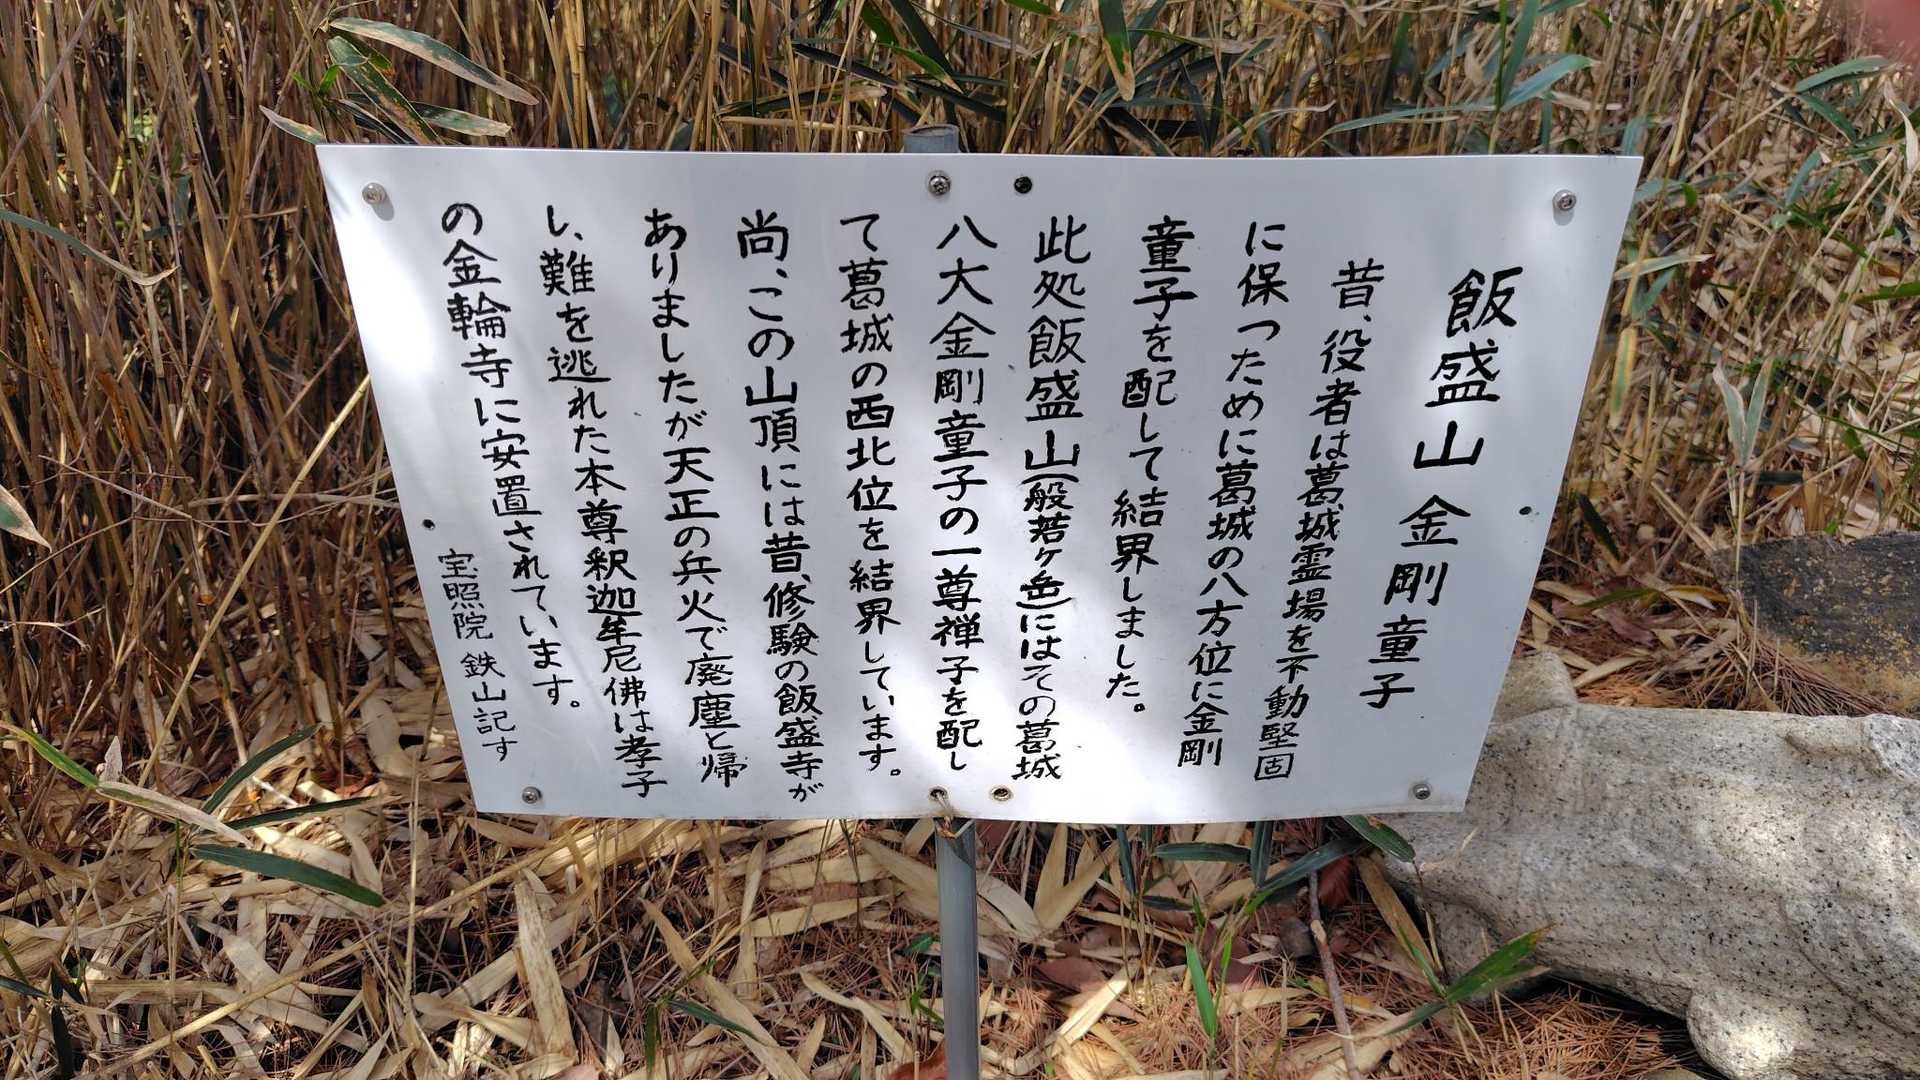 飯盛山 金剛童子
昔、役者は葛城霊場を不動堅固
に保つために葛城の八方位に金剛
童子を配して結界しました。
此処飯盛山(般若ヶ岳)にはその葛城
八大金剛童子の一尊禅子を配し
て葛城の西北位を結界しています。
尚、この山頂には昔、修験の飯盛寺が
ありましたが天正の兵火で廃塵と帰
し、難を逃れた本尊釈迦牟尼佛は孝子
の金輪寺に安置されています。
宝照院 鉄山記す